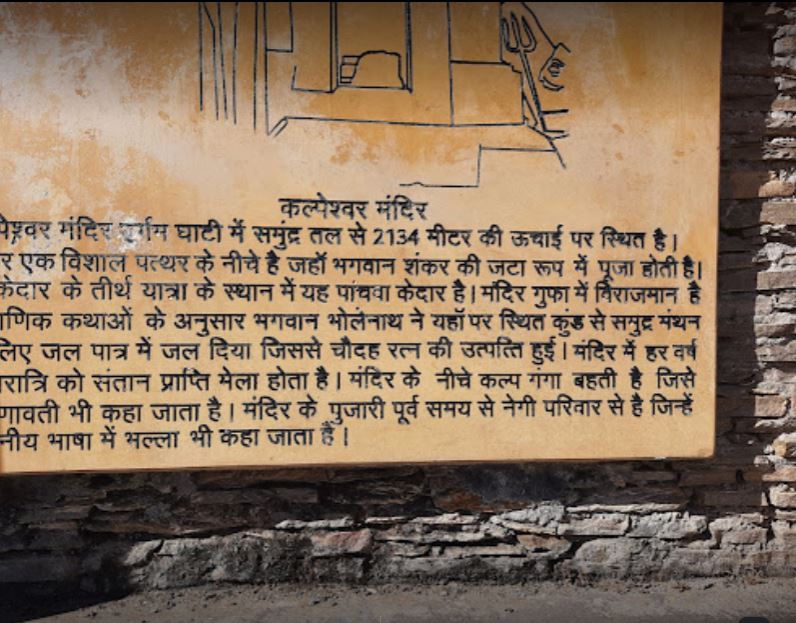 कल्पेश्वर मंदिर
मंदिर घाटी में समुंद्र तल से 2134 मीटर की ऊचाई पर स्थित है।
एक विशाल पत्थर के नीचे है जहाँ भगवान शंकर की जटा रूप में पूजा होती है।
केदार के तीर्थ यात्रा के स्थान में यह पांचवा केदार है। मंदिर गुफा में विराजमान है
कथाओं के अनुसार भगवान भोलेनाथ ने यहाँ पर स्थित कुंड से समुद्र मंथन
लिए जल पात्र में जल दिया जिससे चौदह रत्न की उत्पत्ति हुई। मंदिर में हर वर्ष
को संतान प्राप्ति मेला होता है। मंदिर के नीचे कल्प गंगा बहती है जिसे
भी कहा जाता है। मंदिर के पुजारी पूर्व समय से नेगी परिवार से है जिन्हें
भाषा में भल्ला भी कहा जाता हैं।